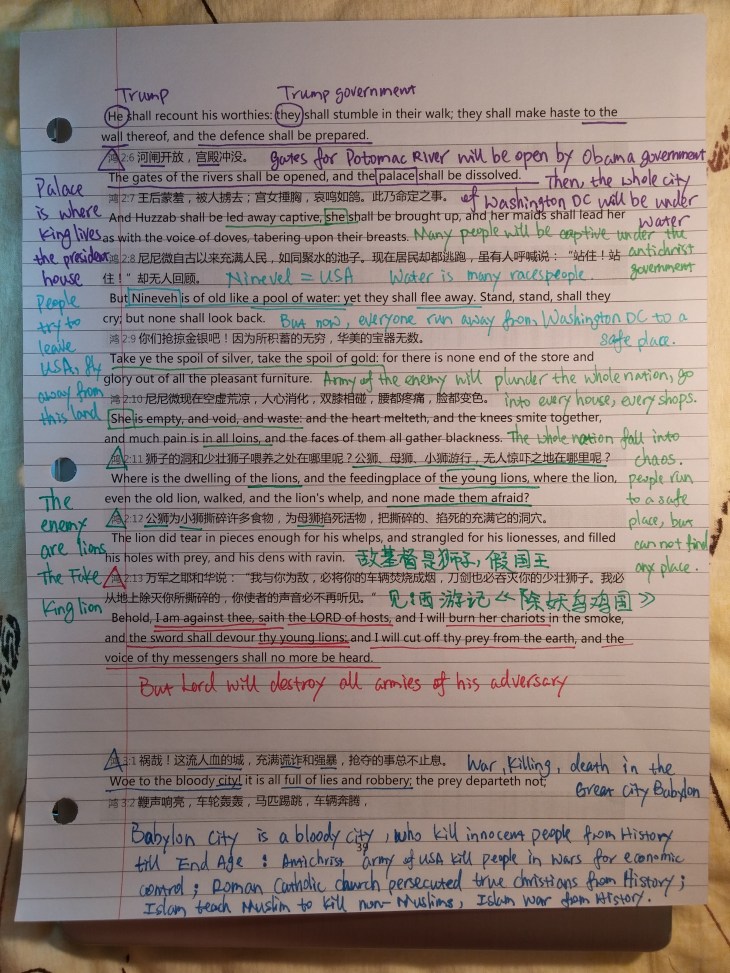 Trump Trump government
He shall recount his worthies: they shall stumble in their walk; they shall make haste to the
wall thereof, and the defence shall be prepared.
鸿 2:6 河闸开放，宫殿冲没。 gates for Potomac River will be open by Obama government
The gates of the rivers shall be opened, and the palace shall be dissolved. Then, the whole city
鸿 2:7 王后蒙羞，被人掳去；宫女捶胸，哀鸣如鸽。此乃命定之事。 of Washington DC will be under
water
And Huzzab shall be led away captive, she shall be brought up, and her maids shall lead her
as with the voice of doves, tabering upon their breasts. Many people will be captive under the
antichrist
government
Palace
is where
King lives,
the president
house
鸿 2:8 尼尼微自古以来充满人民，如同聚水的池子。现在居民却都逃跑，虽有人呼喊说：“站住！站
住！”却无人回顾。 Ninevel = USA Water is many races people.
But Nineveh is of old like a pool of water: yet they shall flee away. Stand, stand, shall they
cry; but none shall look back. But now, everyone run away from Washington DC to a
safe place.
People
try to
leave
USA, fly
away from
this land
鸿 2:9 你们抢掠金银吧！因为所积蓄的无穷，华美的宝器无数。
Take ye the spoil of silver, take the spoil of gold: for there is none end of the store and
glory out of all the pleasant furniture. Army of the enemy will plunder the whole nation, go
鸿 2:10 尼尼微现在空虚荒凉，人心消化，双膝相碰，腰都疼痛，脸都变色。 into every house, every shops.
She is empty, and void, and waste: and the heart melteth, and the knees smite together,
and much pain is in all loins, and the faces of them all gather blackness. The whole nation fall into
chaos.
people run
to a safe
place, but
can not find
any place.
鸿 2:11 狮子的洞和少壮狮子喂养之处在哪里呢？公狮、母狮、小狮游行，无人惊吓之地在哪里呢？
Where is the dwelling of the lions, and the feedingplace of the young lions, where the lion,
even the old lion, walked, and the lion's whelp, and none made them afraid?
鸿 2:12 公狮为小狮撕碎许多食物，为母狮掐死活物，把撕碎的、掐死的充满它的洞穴。
The lion did tear in pieces enough for his whelps, and strangled for his lionesses, and filled
his holes with prey, and his dens with ravin. 敌基督是狮子，假国王
The
enemy
are lions
The Fake
King lion
鸿 2:13 万军之耶和华说：“我与你为敌，必将你的车辆焚烧成烟，刀剑也必吞灭你的少壮狮子。我必
从地上除灭你所撕碎的，你使者的声音必不再听见。” 见：西游记《除妖乌鸡国》
Behold, I am against thee, saith the LORD of hosts, and I will burn her chariots in the smoke,
and the sword shall devour thy young lions: and I will cut off thy prey from the earth, and the
voice of thy messengers shall no more be heard.
But Lord will destroy all armies of his adversary
鸿 3:1 祸哉！这流人血的城，充满谎诈和强暴，抢夺的事总不止息。 War, Killing, death in the
Woe to the bloody city! it is all full of lies and robbery; the prey departeth not; Great city Babylon
鸿 3:2 鞭声响亮，车轮轰轰，马匹踢跳，车辆奔腾，
Babylon City is a bloody city, who kill innocent people from History
39
till End Age : Antichrist army of USA kill people in wars for economic
control ; Roman Catholic church persecuted true christians from History ;
Islam teach Muslim to kill non-Muslims, Islam war from History.